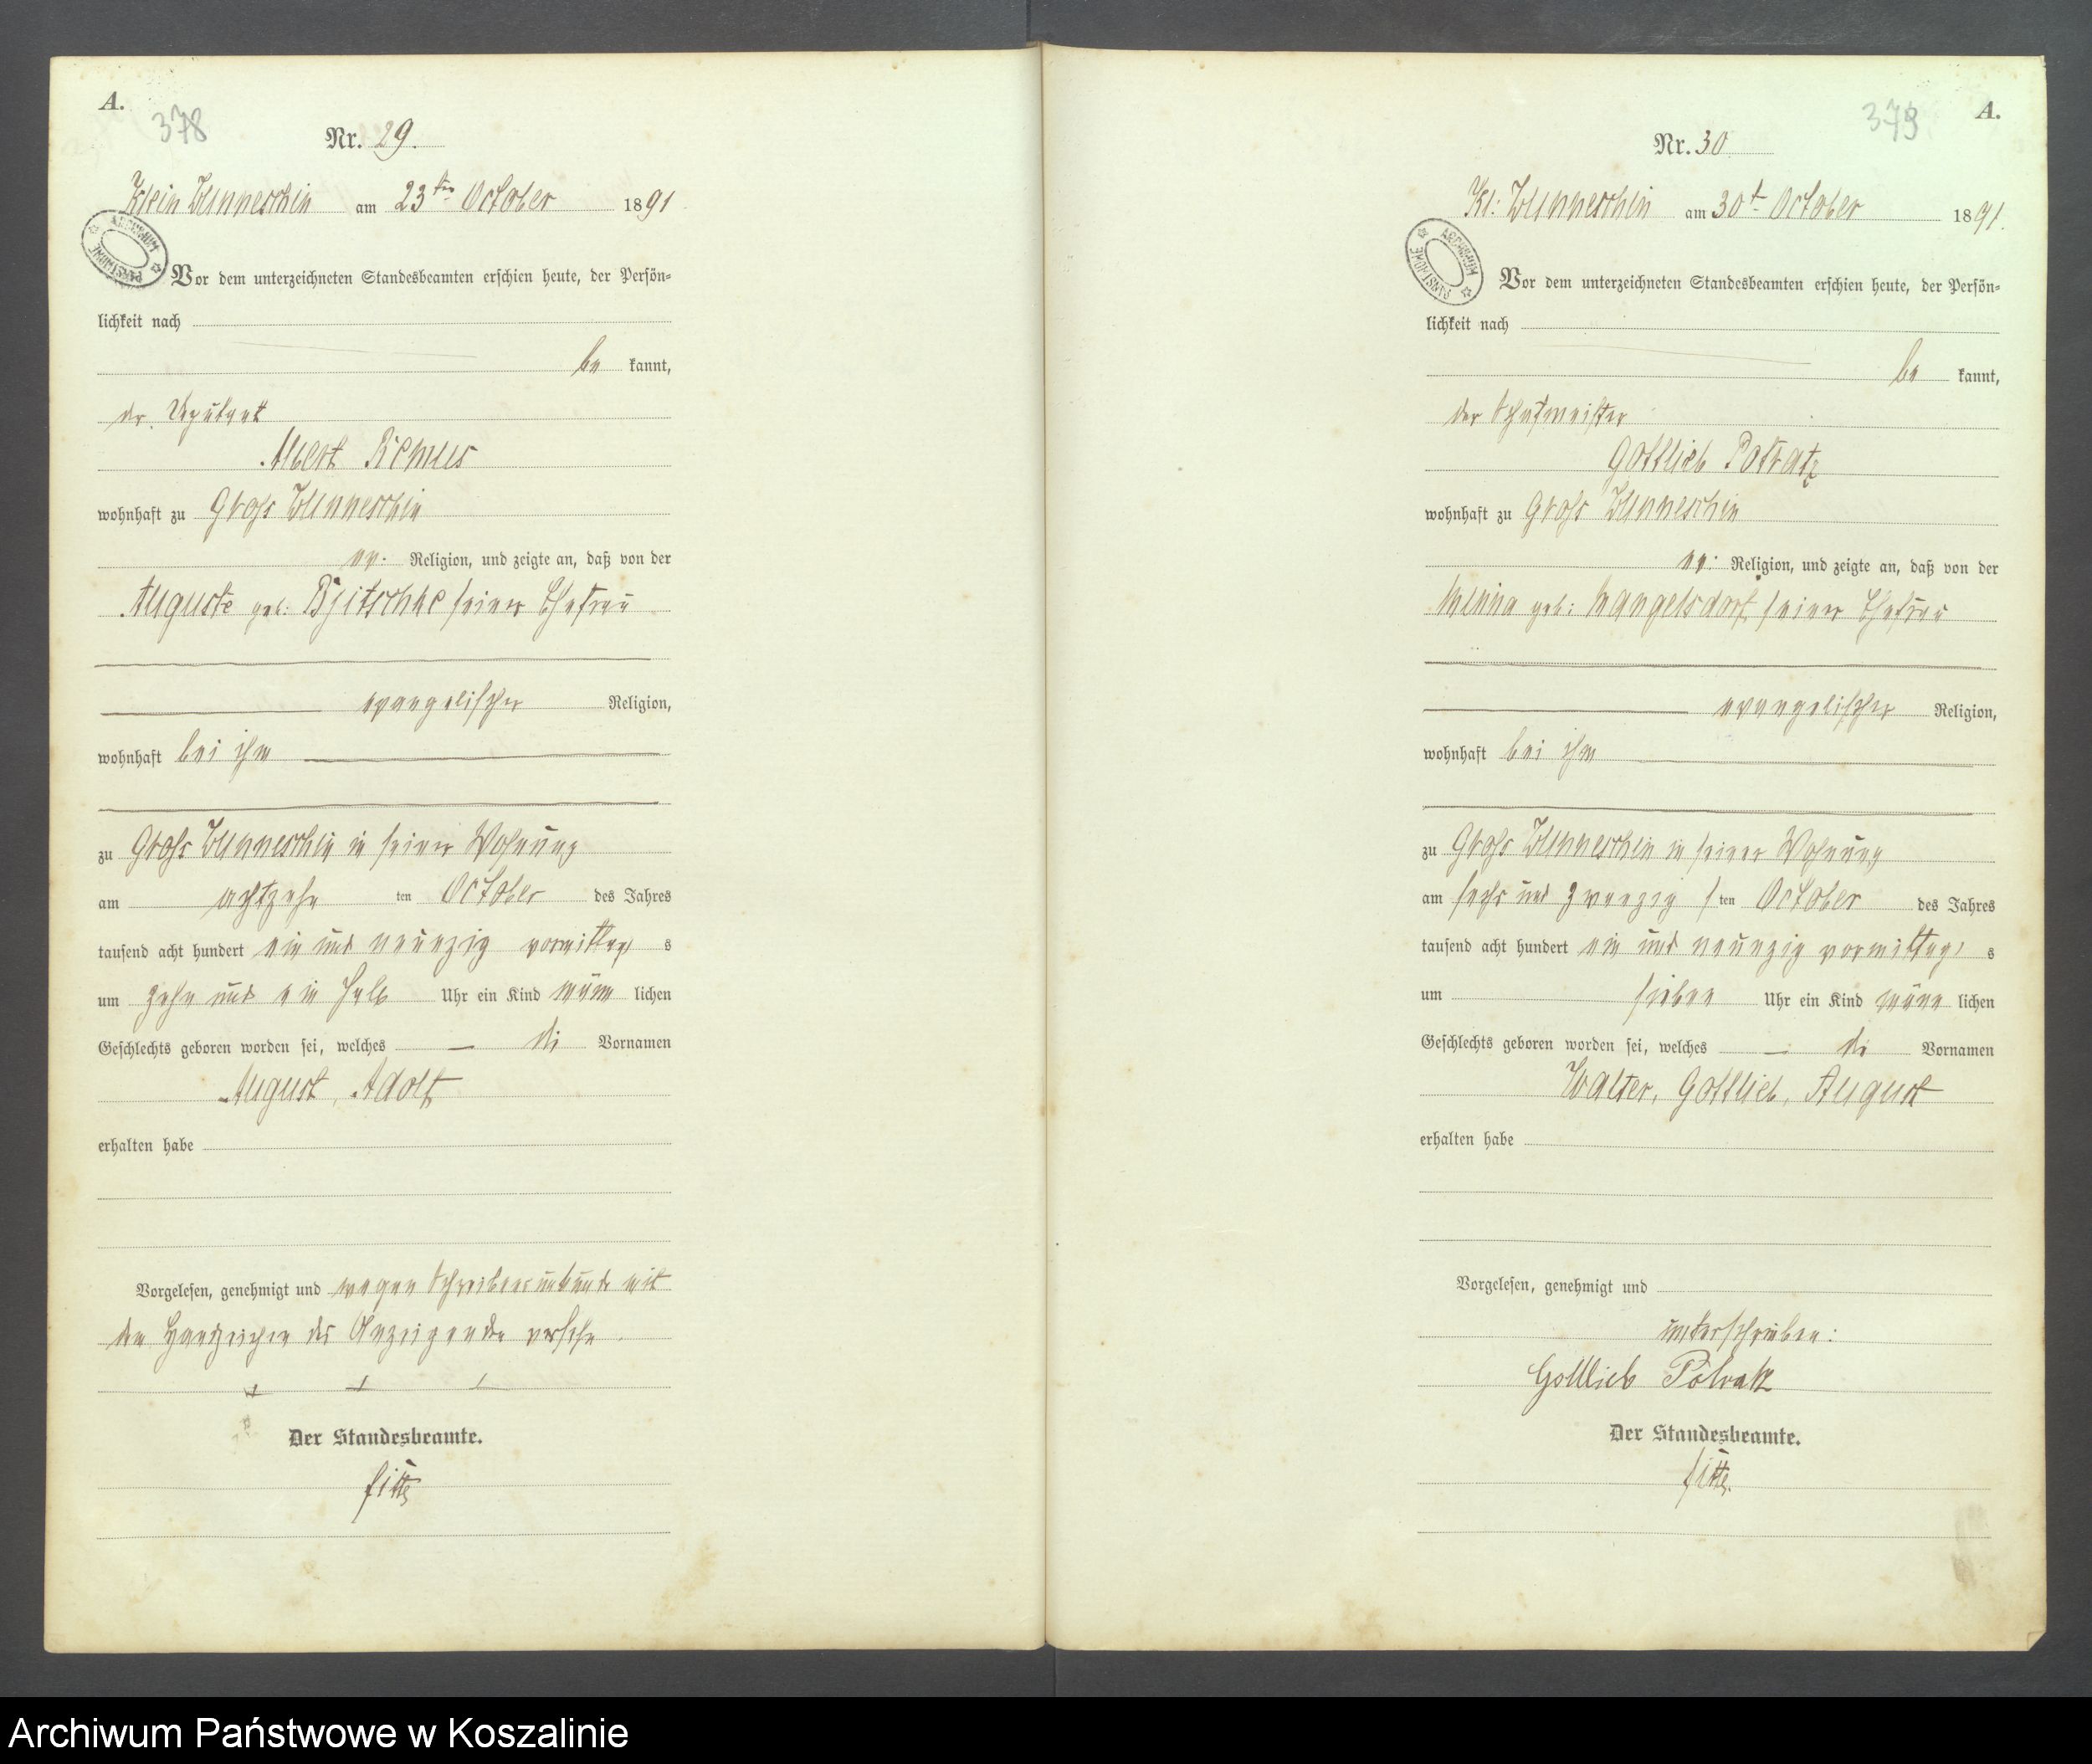 A.
378
Nr. 29.
Klein Wunneschin am 23ten October 1891
ARCHIWUM PAŃSTWOWE
Vor dem unterzeichneten Standesbeamten erschien heute, der Persön-
lichkeit nach
be kannt,
der Deputant
Albert Remus
wohnhaft zu Groß Wunneschin
ev. Religion, und zeigte an, daß von der
Auguste geb: seiner Ehefrau
evangelischer Religion,
wohnhaft bei ihm
zu Groß Wunneschin in seiner Wohnung
am achtzehn ten October des Jahres
tausend acht hundert ein und neunzig vormittag s
um zehn und ein halb Uhr ein Kind männ lichen
Geschlechts geboren worden sei, welches die Vornamen
August, Adolf
erhalten habe
Vorgelesen, genehmigt und wegen Schreibensunkunde mit
den Handzeichen des Anzeigenden versehn.
+ + +
Der Standesbeamte.
A.
379
Nr. 30
Kl: Wunneschin am 30t October 1891.
ARCHIWUM PAŃSTWOWE
Vor dem unterzeichneten Standesbeamten erschien heute, der Persön-
lichkeit nach
be kannt,
der Schafmeister
Gottlieb Potratz
wohnhaft zu Groß Wunneschin
ev: Religion, und zeigte an, daß von der
Minna geb: Mangelsdorf seiner Ehefrau
evangelischer Religion,
wohnhaft bei ihm
zu Groß Wunneschin in seiner Wohnung
am sechs und zwanzig s ten October des Jahres
tausend acht hundert ein und neunzig vormittag s
um sieben Uhr ein Kind männ lichen
Geschlechts geboren worden sei, welches die Vornamen
Walter, Gottlieb, August
erhalten habe
Vorgelesen, genehmigt und
unterschrieben:
Gottlieb Potratz
Der Standesbeamte.
Archiwum Państwowe w Koszalinie